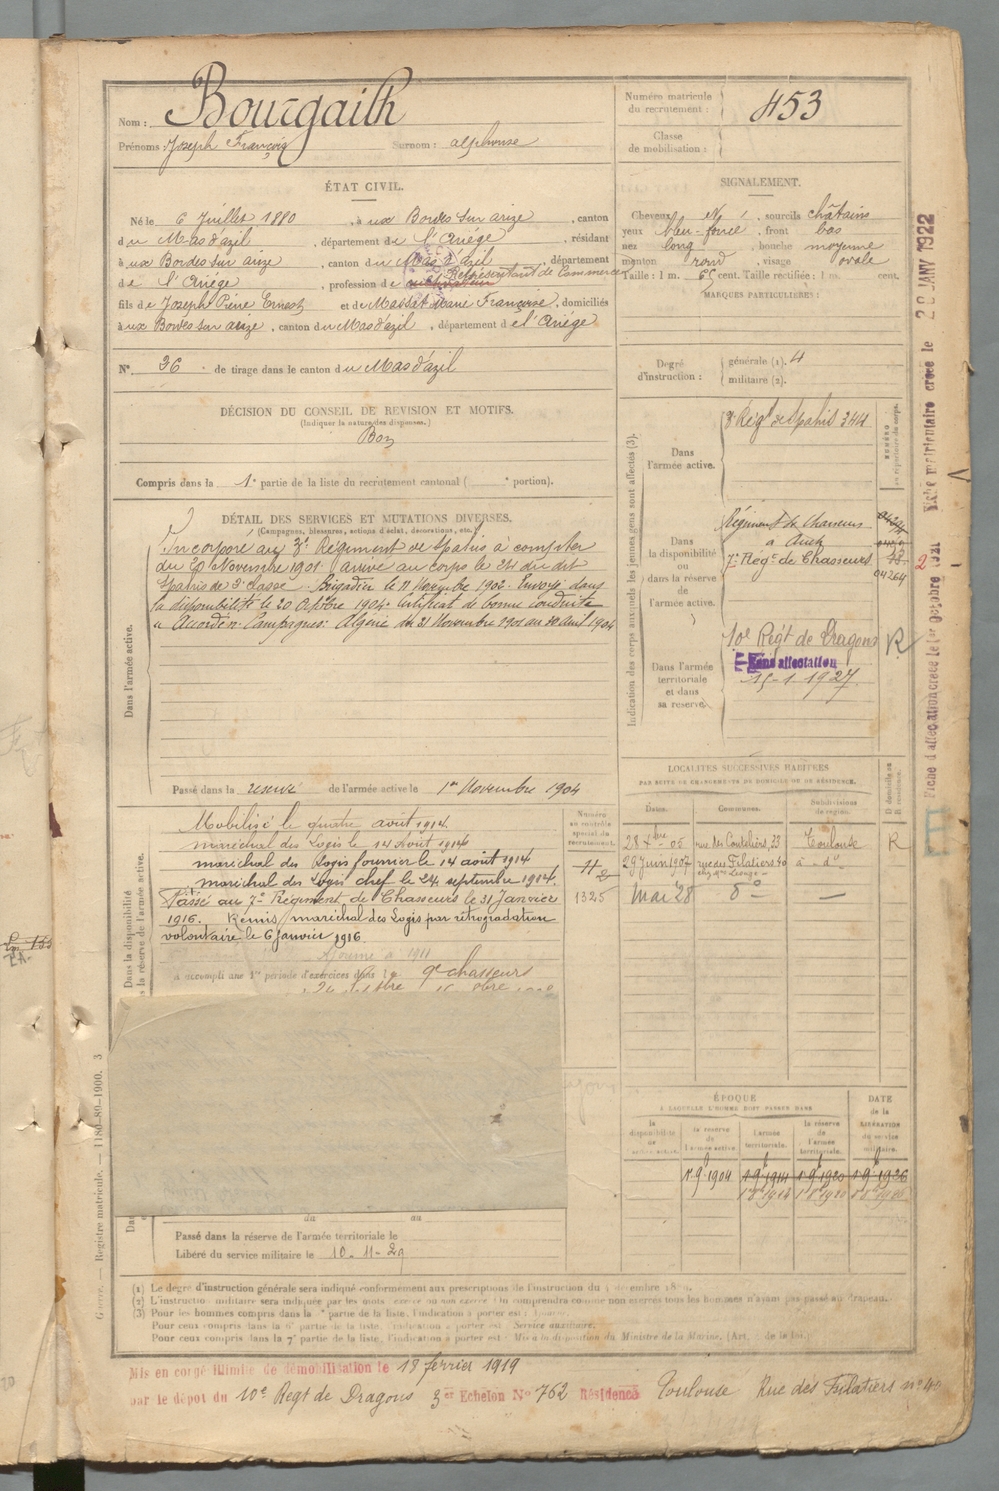 Nom : Bourgailh
Prénoms : Joseph François Surnom : alphonse
Numéro matricule du recrutement : 453
Classe de mobilisation :
ÉTAT CIVIL.
Né le 6 Juillet 1880, à ux Bordes sur arize, canton
du Mas d'azil, département de l'Ariége, résidant
à ux Bordes sur arize, canton du Mas d'azil, département
de l'Ariége, profession de Représentant de Commerce
fils de Joseph Pierre Ernest et de Massat Marie Françoise, domiciliés
à ux Bordes sur arize, canton du Mas d'azil, département de l'Ariége
N° 36 de tirage dans le canton du Mas d'azil
DÉCISION DU CONSEIL DE REVISION ET MOTIFS.
(Indiquer la nature des dispenses.)
Bon
Compris dans la 1e partie de la liste du recrutement cantonal ( e portion).
SIGNALEMENT.
Cheveux , sourcils châtains
yeux bleu-foncé, front bas
nez long, bouche moyenne
menton rond, visage ovale
Taille : 1 m. 65 cent. Taille rectifiée : 1 m. cent.
MARQUES PARTICULIÈRES :
Degré d'instruction : générale (1). 4
militaire (2).
DÉTAIL DES SERVICES ET MUTATIONS DIVERSES.
(Campagnes, blessures, actions d'éclat, décorations, etc.)
Dans l'armée active.
Incorporé au 3e Régiment de Spahis à compter
du 20 Novembre 1901 arrivé au corps le 21 du dit
Spahis de 2e classe Brigadier le 11 Novembre 1902. Envoyé dans
la disponibilité le 20 Octobre 1904. Certificat de bonne conduite
Accordé. Campagnes : Algérie du 21 Novembre 1901 au 20 Aout 1904
Passé dans la réserve de l'armée active le 1er Novembre 1904
Dans la disponibilité
la réserve de l'armée active.
Mobilisé le quatre août 1914.
maréchal des Logis le 14 Août 1914
maréchal des Logis fourrier le 14 août 1914
maréchal des Logis chef le 24 septembre 1914.
Passé au 7e Régiment de Chasseurs le 31 Janvier
1916. Remis maréchal des Logis par rétrogradation
volontaire le 6 Janvier 1916.
Ajourné à 1911
a accompli une 1re période d'exercices dans le 9e chasseurs
Numéro au contrôle spécial du recrutement.
1325
Indication des corps auxquels les jeunes gens sont affectés (3).
Dans l'armée active.
3e Régt de Spahis 3441
NUMÉRO
au répertoire du corps.
Dans la disponibilité ou dans la réserve de l'armée active.
Régiment de Chasseurs
à Auch
7e Régt de Chasseurs
04264
Dans l'armée territoriale et dans sa réserve.
10e Régt de Dragons R
Sans affectation
15-1-1927.
LOCALITÉS SUCCESSIVES HABITÉES
PAR SUITE DE CHANGEMENTS DE DOMICILE OU DE RÉSIDENCE.
Dates. Communes. Subdivisions de région. D domicile ou R résidence.
28 Xbre 05 rue des Couteliers, 33 Toulouse R
29 Juin 1907 rue des Filatiers 40 à -do
Mai 28 do —
ÉPOQUE
À LAQUELLE L'HOMME DOIT PASSER DANS
la disponibilité de l'armée active.
la réserve de l'armée active.
l'armée territoriale.
la réserve de l'armée territoriale.
DATE de la LIBÉRATION du service militaire.
1er 9bre 1904 1er 9bre 1914 1er 9bre 1920 1er 9bre 1926
du au
Passé dans la réserve de l'armée territoriale le
Libéré du service militaire le 10-11-29
(1) Le degré d'instruction générale sera indiqué conformément aux prescriptions de l'instruction du
(2) L'instruction militaire sera indiquée par les mots exercé ou non exercé. On comprendra comme non exercés tous les hommes n'ayant pas passé au drapeau.
(3) Pour les hommes compris dans la partie de la liste, l'indication à porter est :
Pour ceux compris dans la 6e partie de la liste, l'indication à porter est : Service auxiliaire.
Pour ceux compris dans la 7e partie de la liste, l'indication à porter est : Mis à la disposition du Ministre de la Marine. (Art. de la loi.)
Mis en congé illimité de démobilisation le 18 février 1919
par le dépôt du 10e Regt de Dragons 3er Echelon N° 762 Résidence Toulouse Rue des Filatiers n° 40
Guerre. — Registre matricule. — 1180-80-1900. 3
Fiche d'affectation créée le 1er octobre 1921 Fiche matriculaire créée le 20 JANV 1922